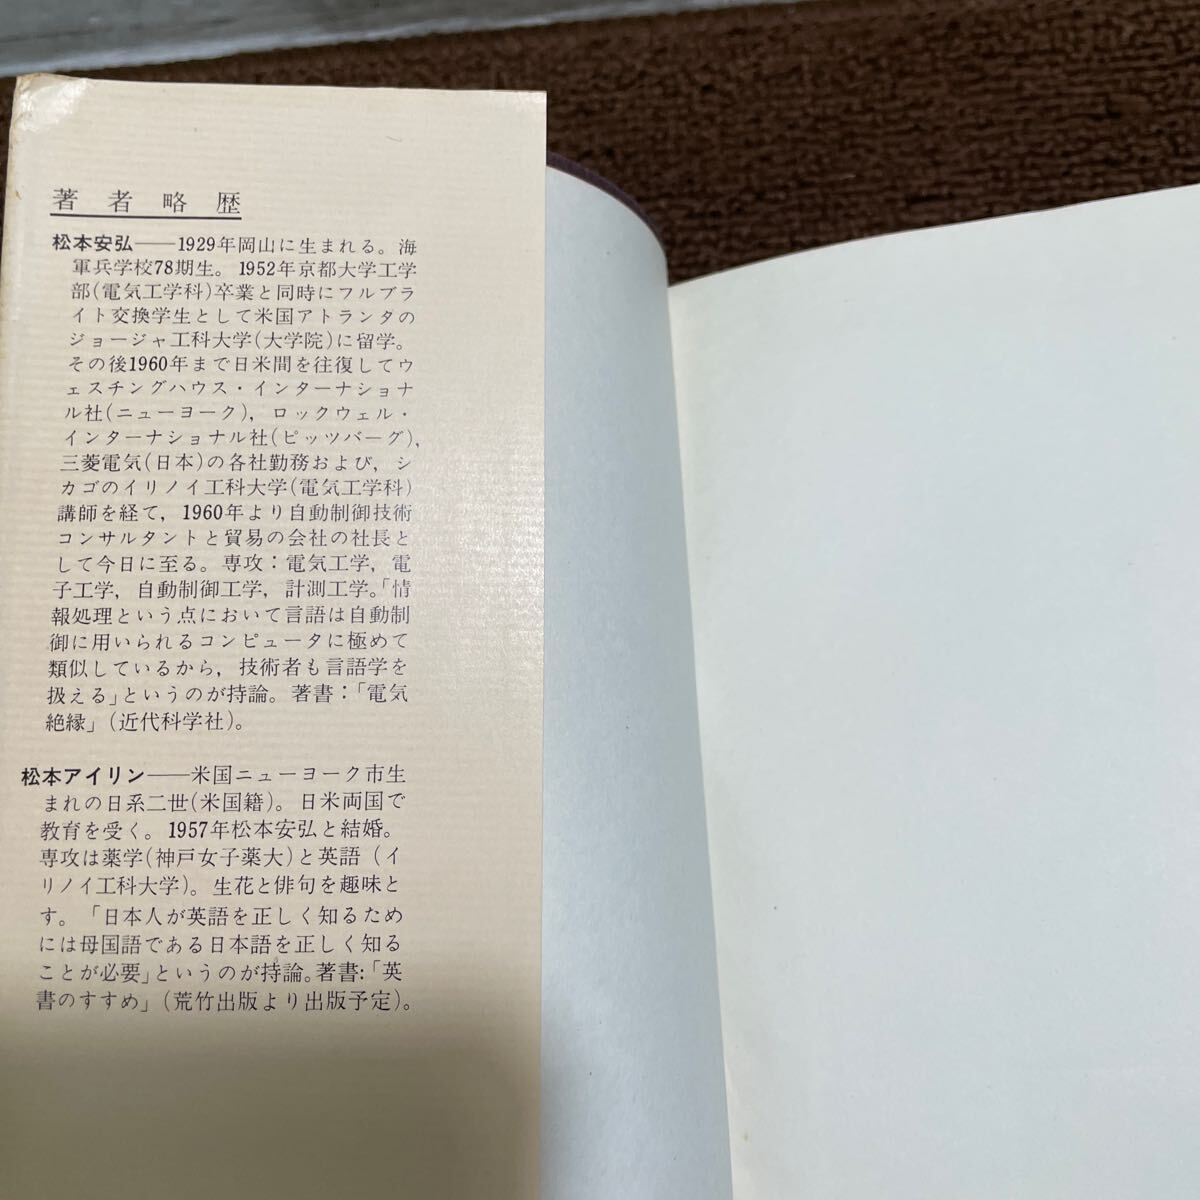 著者略歴
松本安弘――1929年岡山に生まれる。海
軍兵学校78期生。1952年京都大学工学
部(電気工学科)卒業と同時にフルブラ
イト交換学生として米国アトランタの
ジョージャ工科大学(大学院)に留学。
その後1960年まで日米間を往復してウ
ェスチングハウス・インターナショナ
ル社(ニューヨーク)，ロックウェル・
インターナショナル社(ピッツバーグ)，
三菱電気(日本)の各社勤務および，シ
カゴのイリノイ工科大学(電気工学科)
講師を経て，1960年より自動制御技術
コンサルタントと貿易の会社の社長と
して今日に至る。専攻：電気工学，電
子工学，自動制御工学，計測工学。「情
報処理という点において言語は自動制
御に用いられるコンピュータに極めて
類似しているから，技術者も言語学を
扱える」というのが持論。著書：「電気
絶縁」(近代科学社)。
松本アイリン――米国ニューヨーク市生
まれの日系二世(米国籍)。日米両国で
教育を受く。1957年松本安弘と結婚。
専攻は薬学(神戸女子薬大)と英語(イ
リノイ工科大学)。生花と俳句を趣味と
す。「日本人が英語を正しく知るため
には母国語である日本語を正しく知る
ことが必要」というのが持論。著書:「英
書のすすめ」(荒竹出版より出版予定)。